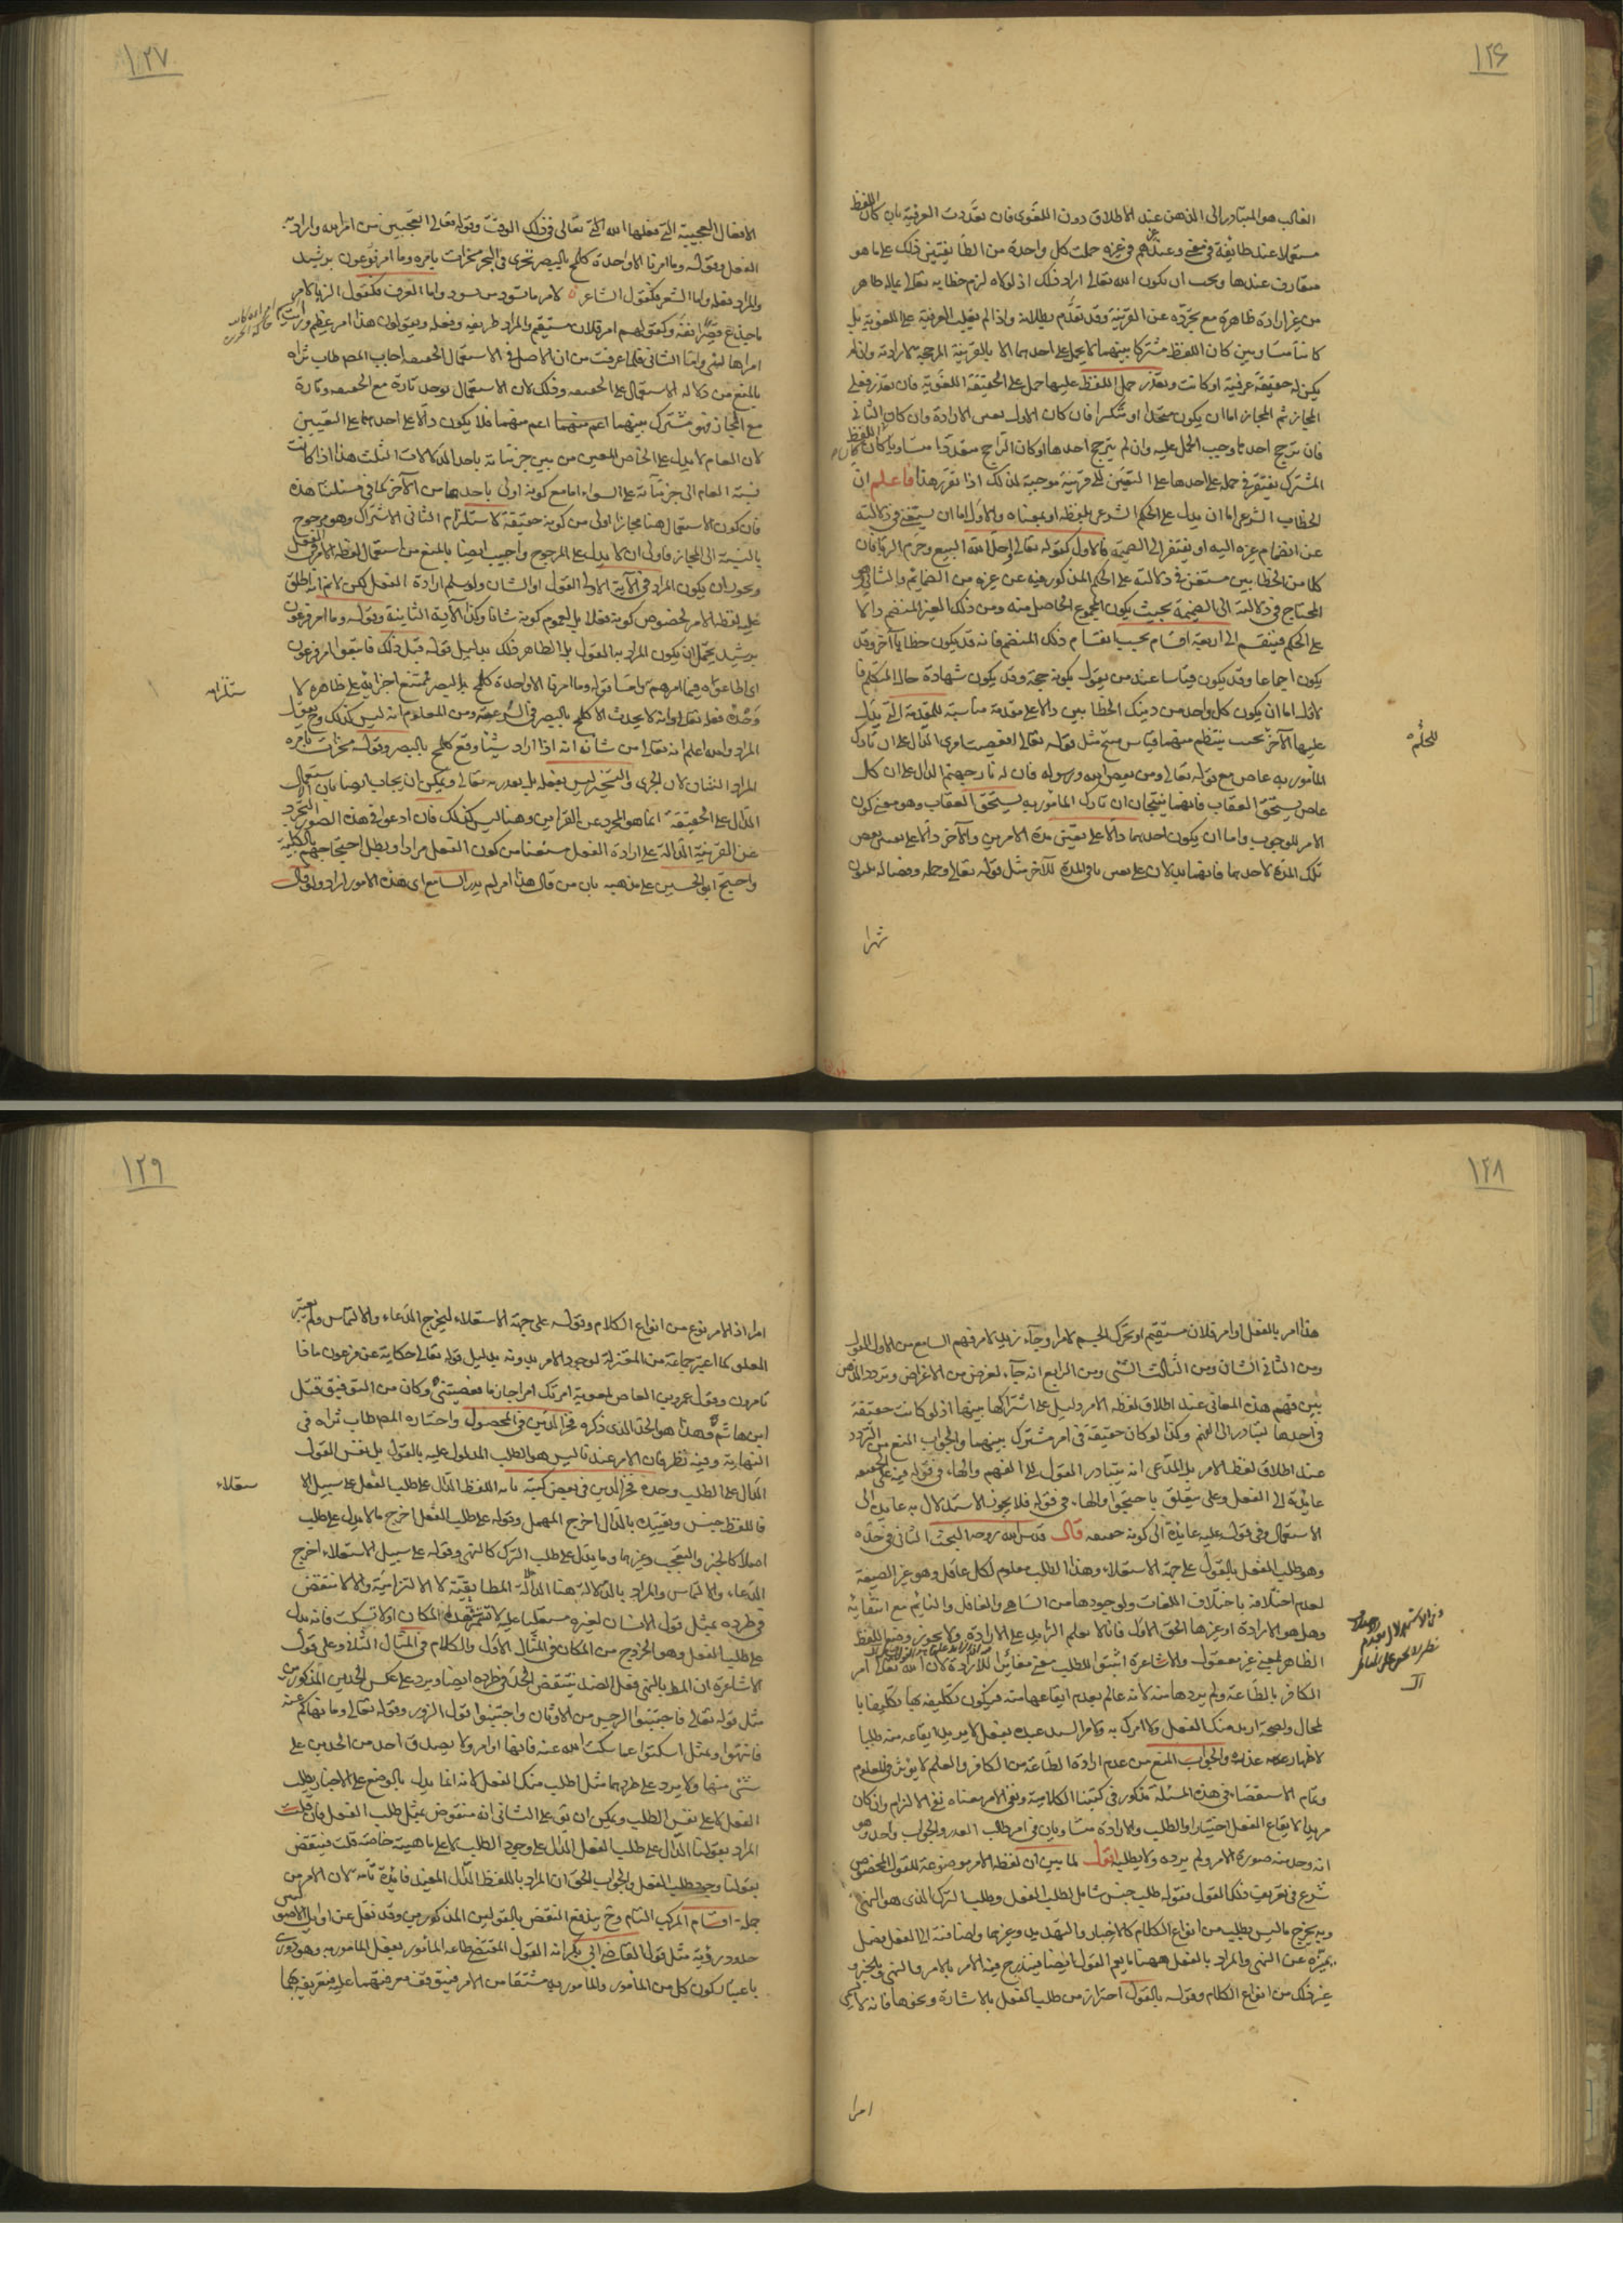 ١٢۶
الغالب هو المتبادر الى الذهن عند الاطلاق دون اللغوى فان تعدّدت العرفية بان كان اللفظ
مستعملا عند طائفة فى معنى وعند غيرهم فى غيره حملت كل واحدة من الطايفتين ذلك على ما هو
متعارف عندها ويجب ان يكون الله تعالى اراد ذلك اذ لولاه لزم خطابه تعالى بماله ظاهر
من غير ارادة ظاهره مع تجرّده عن القرينة وقد تقدّم بطلانه واذا لم يغلب العرفية على اللغوية بل
كانتا متساويين كان اللفظ مشتركا بينهما لا يحمل على احدهما الا بالقرينة المرجحة لارادته وان لم
يكن له حقيقة عرفية او كانت وتعذر حمل اللفظ عليها حمل على الحقيقة اللغوية فان تعذر فعلى
المجاز ثم المجاز اما ان يكون متحدا او متكثرا فان كان الاول تعين الارادة وان كان الثانى
فان ترجح احدها وجب الحمل عليه وان لم يترجح احدها او كان الراجح متعددا متساويا كان اللفظ
المشترك يفتقر فى حمله على احدها على التعين الى قرينة موجبة لذلك اذا تقرر هذا فاعلم ان
الخطاب الشرعى اما ان يدل على الحكم الشرعى بلفظه او بمعناه والاول اما ان يستغنى فى دلالته
عن انضمام غيره اليه او يفتقر الى الضميمة فالاول كقوله تعالى احل الله البيع وحرم الربا فان
كلا من الخطابين مستغن فى دلالته على الحكم المذكور فيه عن غيره من الضمايم والثانى هو
المحتاج فى دلالته الى الضميمة بحيث يكون المجموع الحاصل منه ومن ذلك الغير المنضم دالا
على الحكم فينقسم الى اربعة اقسام بحسب انقسام ذلك المنضم فانه قد يكون خطابا آخر وقد
يكون اجماعا وقد يكون قياسا عند من يقول بكونه حجة وقد يكون شهادة حال المتكلم فا
لاول اما ان يكون كل واحد من دينك الخطابين دالا على مقدمة مناسبة للمقدمة التى يدل
عليها الآخر بحيث ينتظم منهما قياس منتج مثل قوله تعالى افعصيت امرى الدال على ان تارك
المأمور به عاص مع قوله تعالى ومن يعص الله ورسوله فان له نار جهنم الدال على ان كل
عاص يستحق العقاب فانهما ينتجان ان تارك المأمور به يستحق العقاب وهو معنى كون
الامر للوجوب واما ان يكون احدهما دالا على تعيين مدة الامرين والآخر دالا على تعيين بعض
تلك المدة لاحدهما فانهما يدلان على تعيين باقى المدة للآخر مثل قوله تعالى وحمله وفصاله ثلثون
شهرا
١٢٧
الافعال العجيبة التى فعلها الله تعالى فى ذلك الوقت وقوله تعالى اتعجبين من امر الله واراد به
الفعل وبقوله وما امرنا الا واحدة كلمح بالبصر تجرى فى البحر مسخرات بامره وما امر فرعون برشيد
والمراد فعله واما الشعر فكقول الشاعر لامر ما يسود من يسود واما العرف فكقول الزبا لامر
ما جذع قصير انفه وكقولهم امر فلان مستقيم والمراد طريقه وفعله ويقولون هذا امر عظيم ورايت
امراها لنى واما الثانى فلما عرفت من ان الاصل فى الاستعمال الحقيقة اجاب المص طاب ثراه
بالمنع من دلالة الاستعمال على الحقيقة وذلك لان الاستعمال يوجد تارة مع الحقيقة وتارة
مع المجاز فهو مشترك بينهما اعم منهما فلا يكون دالا على احدهما على التعيين
لان العام لا يدل على الخاص المعين من بين جزئياته باحد الدلالات الثلث هذا اذا كانت
نسبة العام الى جزئياته على السواء اما مع كونه اولى باحدهما من الآخر كما فى مسئلتنا هذه
فان كون الاستعمال هنا مجازا اولى من كونه حقيقة لاستلزام الثانى الاشتراك وهو مرجوح
بالنسبة الى المجاز فاولى ان لا يدل على المرجوح واجيب ايضا بالمنع من استعمال لفظة الامر فى الفعل
ويجوز ان يكون المراد فى الآية الاولى القول او الشان ولو سلم ارادة الفعل لكن لا نم انه اطلق
عليه لفظة الامر لخصوص كونه فعلا بل لعموم كونه شانا وكذا الآية الثانية وقوله وما امر فرعون
برشيد يحتمل ان يكون المراد به القول بل الظاهر ذلك بدليل قوله قبل ذلك فاتبعوا امر فرعون
اى اطاعوه فيما امرهم به واما قوله وما امرنا الا واحدة كلمح بالبصر فيمتنع اجرائه على ظاهره لا
وحدة فعله تعالى وانه لا يحدث الا كلمح بالبصر فى السرعة ومن المعلوم انه ليس كذلك وح يكون
المراد والله اعلم انه تعالى من شانه انه اذا اراد شيئا وقع كلمح بالبصر وقوله مسخرات بامره
المراد الشان لان الجرى والتسخير ليس بفعله بل بقدرته تعالى ويمكن ان يجاب ايضا بان الاستعمال
الدال على الحقيقة انما هو المجرد عن القراين وهنا ليس كذلك فان ادعوا فى هذه الصور التجرد
عن القرينة الدالة على ارادة الفعل منعنا من كون الفعل مرادا وبطل احتجاجهم بالكلية
واحتج ابو الحسين على مذهبه بان من قال هذا امر لم يدر السامع اى هذه الامور اراد ولو قال
١٢٨
هذا امر بالفعل او امر فلان مستقيم او تحرك الجسم لامر او جاء زيد لامر فهم السامع من الاول القول
ومن الثانى الشان ومن الثالث الشئ ومن الرابع انه جاء لغرض من الاغراض وتردد الذهن
بين فهم هذه المعانى عند اطلاق لفظة الامر دليل على اشتراكها بينها اذ لو كانت حقيقة
فى احدها لتبادر الى الفهم وكذا لو كان حقيقة فى امر مشترك بينهما والجواب المنع من التردد
عند اطلاق لفظ الامر بل المدعى انه يتبادر القول الى الفهم والهاء فى قوله فيه على الحقيقة
عايدة الى الفعل وعلى يتعلق باحتجوا والهاء فى قوله فلا يجوز الاستدلال به عايد الى
الاستعمال وفى قوله عليه عايدة الى كونه حقيقة قال قدس الله روحه البحث الثانى فى حدّه
وهو طلب الفعل بالقول على جهة الاستعلاء وهذا الطلب معلوم لكل عاقل وهو غير الصيغة
لعدم اختلافه باختلاف اللغات ولوجودها من الساهى والغافل والنايم مع انتفائه
وهل هو الارادة او غيرها الحق الاول فانا لا نعلم الزايد على الارادة ولا يجوز وضع اللفظ
الظاهر لمعنى غير معقول والاشاعرة اثبتوا للطلب معنى مغايرا للارادة لان الله تعالى امر
الكافر بالطاعة ولم يردها منه لانه عالم بعدم ايقاعها منه فيكون تكليفه بها تكليفا با
لمحال ولصحة اريد منك الفعل ولا امرك به ولامر السيد عبده بفعل لا يريد ايقاعه منه طلبا
لاظهار عذره والجواب المنع من عدم ارادة الطاعة من الكافر والعلم لا يؤثر فى المعلوم
وتمام الاستقصاء فى هذه المسئلة مذكور فى كتبنا الكلامية ونفى الامر معناه نفى الالزام وان كان
مريدا لايقاع الفعل اختيارا والطلب والارادة متساويان فى امر طالب العذر والجواب واحد وهو
انه وجد منه صورة الامر ولم يرده ولا يطلبه اقول لما بين ان لفظة الامر موضوعة للقول المخصوص
شرع فى تعريف ذلك القول فقوله طلب جنس شامل لطلب الفعل وطلب الترك الذى هو النهى
وبه يخرج ما ليس بطلب من انواع الكلام كالاخبار والتهديد وغيرهما واضافته الى الفعل فصل
يميزه عن النهى والمراد بالفعل ههنا ما يعم القول ايضا فيندرج فيه الامر بالامر والنهى والخبر و
غير ذلك من انواع الكلام وقوله بالقول احتراز من طلب الفعل بالاشارة ونحوها فانه لا يسمى
امرا
١٢٩
امرا اذ الامر نوع من انواع الكلام وقوله على جهة الاستعلاء ليخرج الدعاء والالتماس ولم يعتبر
العلو كما اعتبر جماعة من المعتزلة لوجود الامر بدونه بدليل قوله تعالى حكاية عن فرعون ماذا
تامرون وقول عمرو بن العاص لمعوية امرتك امرا جازما فعصيتنى وكان من التوفيق قتل
ابن هاشم وهذا هو الحد الذى ذكره فخر الدين فى المحصول واختاره المص طاب ثراه فى
النهاية وفيه نظر فان الامر عندنا ليس هو الطلب المدلول عليه بالقول بل نفس القول
الدال على الطلب وحده فخر الدين فى بعض كتبه بانه اللفظ الدال على طلب الفعل على سبيل الا
فاللفظ جنس وتقييده بالدال اخرج المهمل وقوله على طلب الفعل اخرج ما لا يدل على طلب
اصلا كالخبر والتعجب وغيرهما وما يدل على طلب الترك كالنهى وقوله على سبيل الاستعلاء اخرج
الدعاء والالتماس والمراد بالدلالة هنا الدلالة المطابقية لا الالتزامية والا لانتقض
فى طرده بمثل قول الانسان لغيره مستعليا عليه لا تقم فى هذا المكان او لا تسكت فانه يدل
على طلب الفعل وهو الخروج من المكان فى المثال الاول والكلام فى المثال الثانى وعلى قول
الاشاعرة ان المط بالنهى فعل الضد ينتقض الحد فى طرده ايضا ويرد على عكس الحدين المذكورين
مثل قوله تعالى فاجتنبوا الرجس من الاوثان واجتنبوا قول الزور وقوله تعالى وما نهاكم عنه
فانتهوا ومثل اسكتوا عما سكت الله عنه فانها اوامر ولا يصدق احد من الحدين على
شئ منها ولا يرد على طردهما مثل اطلب منك الفعل لانه انما يدل بالوضع على الاخبار بطلب
الفعل لا على نفس الطلب ويمكن ان يق على الثانى انه منقوض بمثل طلب الفعل فان قلت
المراد بقولنا الدال على طلب الفعل الدال على وجود الطلب لا على ماهيته خاصة قلت فينتقض
بقولنا وجد طلب الفعل والجواب الحق ان المراد باللفظ الدال المفيد فايدة تامة لان الامر من
جملة اقسام المركب التام وح يندفع النقض بالقولين المذكورين وقد نقل عن اوايل الاصوليين
حدود ردية مثل قول القاضى ابى بكر انه القول المقتضى طاعة المأمور بفعل المأمور به وهو دورى
باعتبار كون كل من المأمور والمأمور به مشتقا من الامر فيتوقف معرفتهما عليه فتعريفه بهما